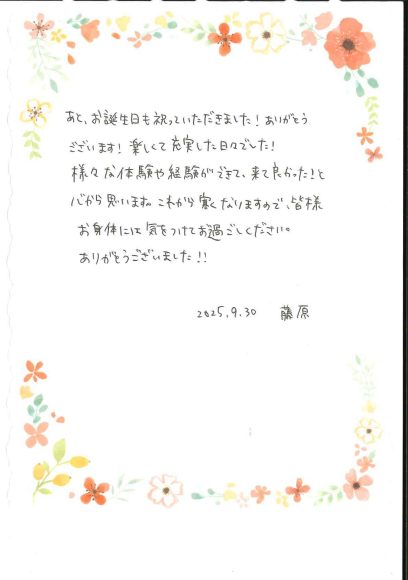 あと、お誕生日も祝っていただきました！ありがとう
ございます！楽しくて充実した日々でした！
様々な体験や経験ができて、来て良かった！と
心から思います。これから寒くなりますので、皆様
お身体には気をつけてお過ごしください。
ありがとうございました！！
2025.9.30 藤原